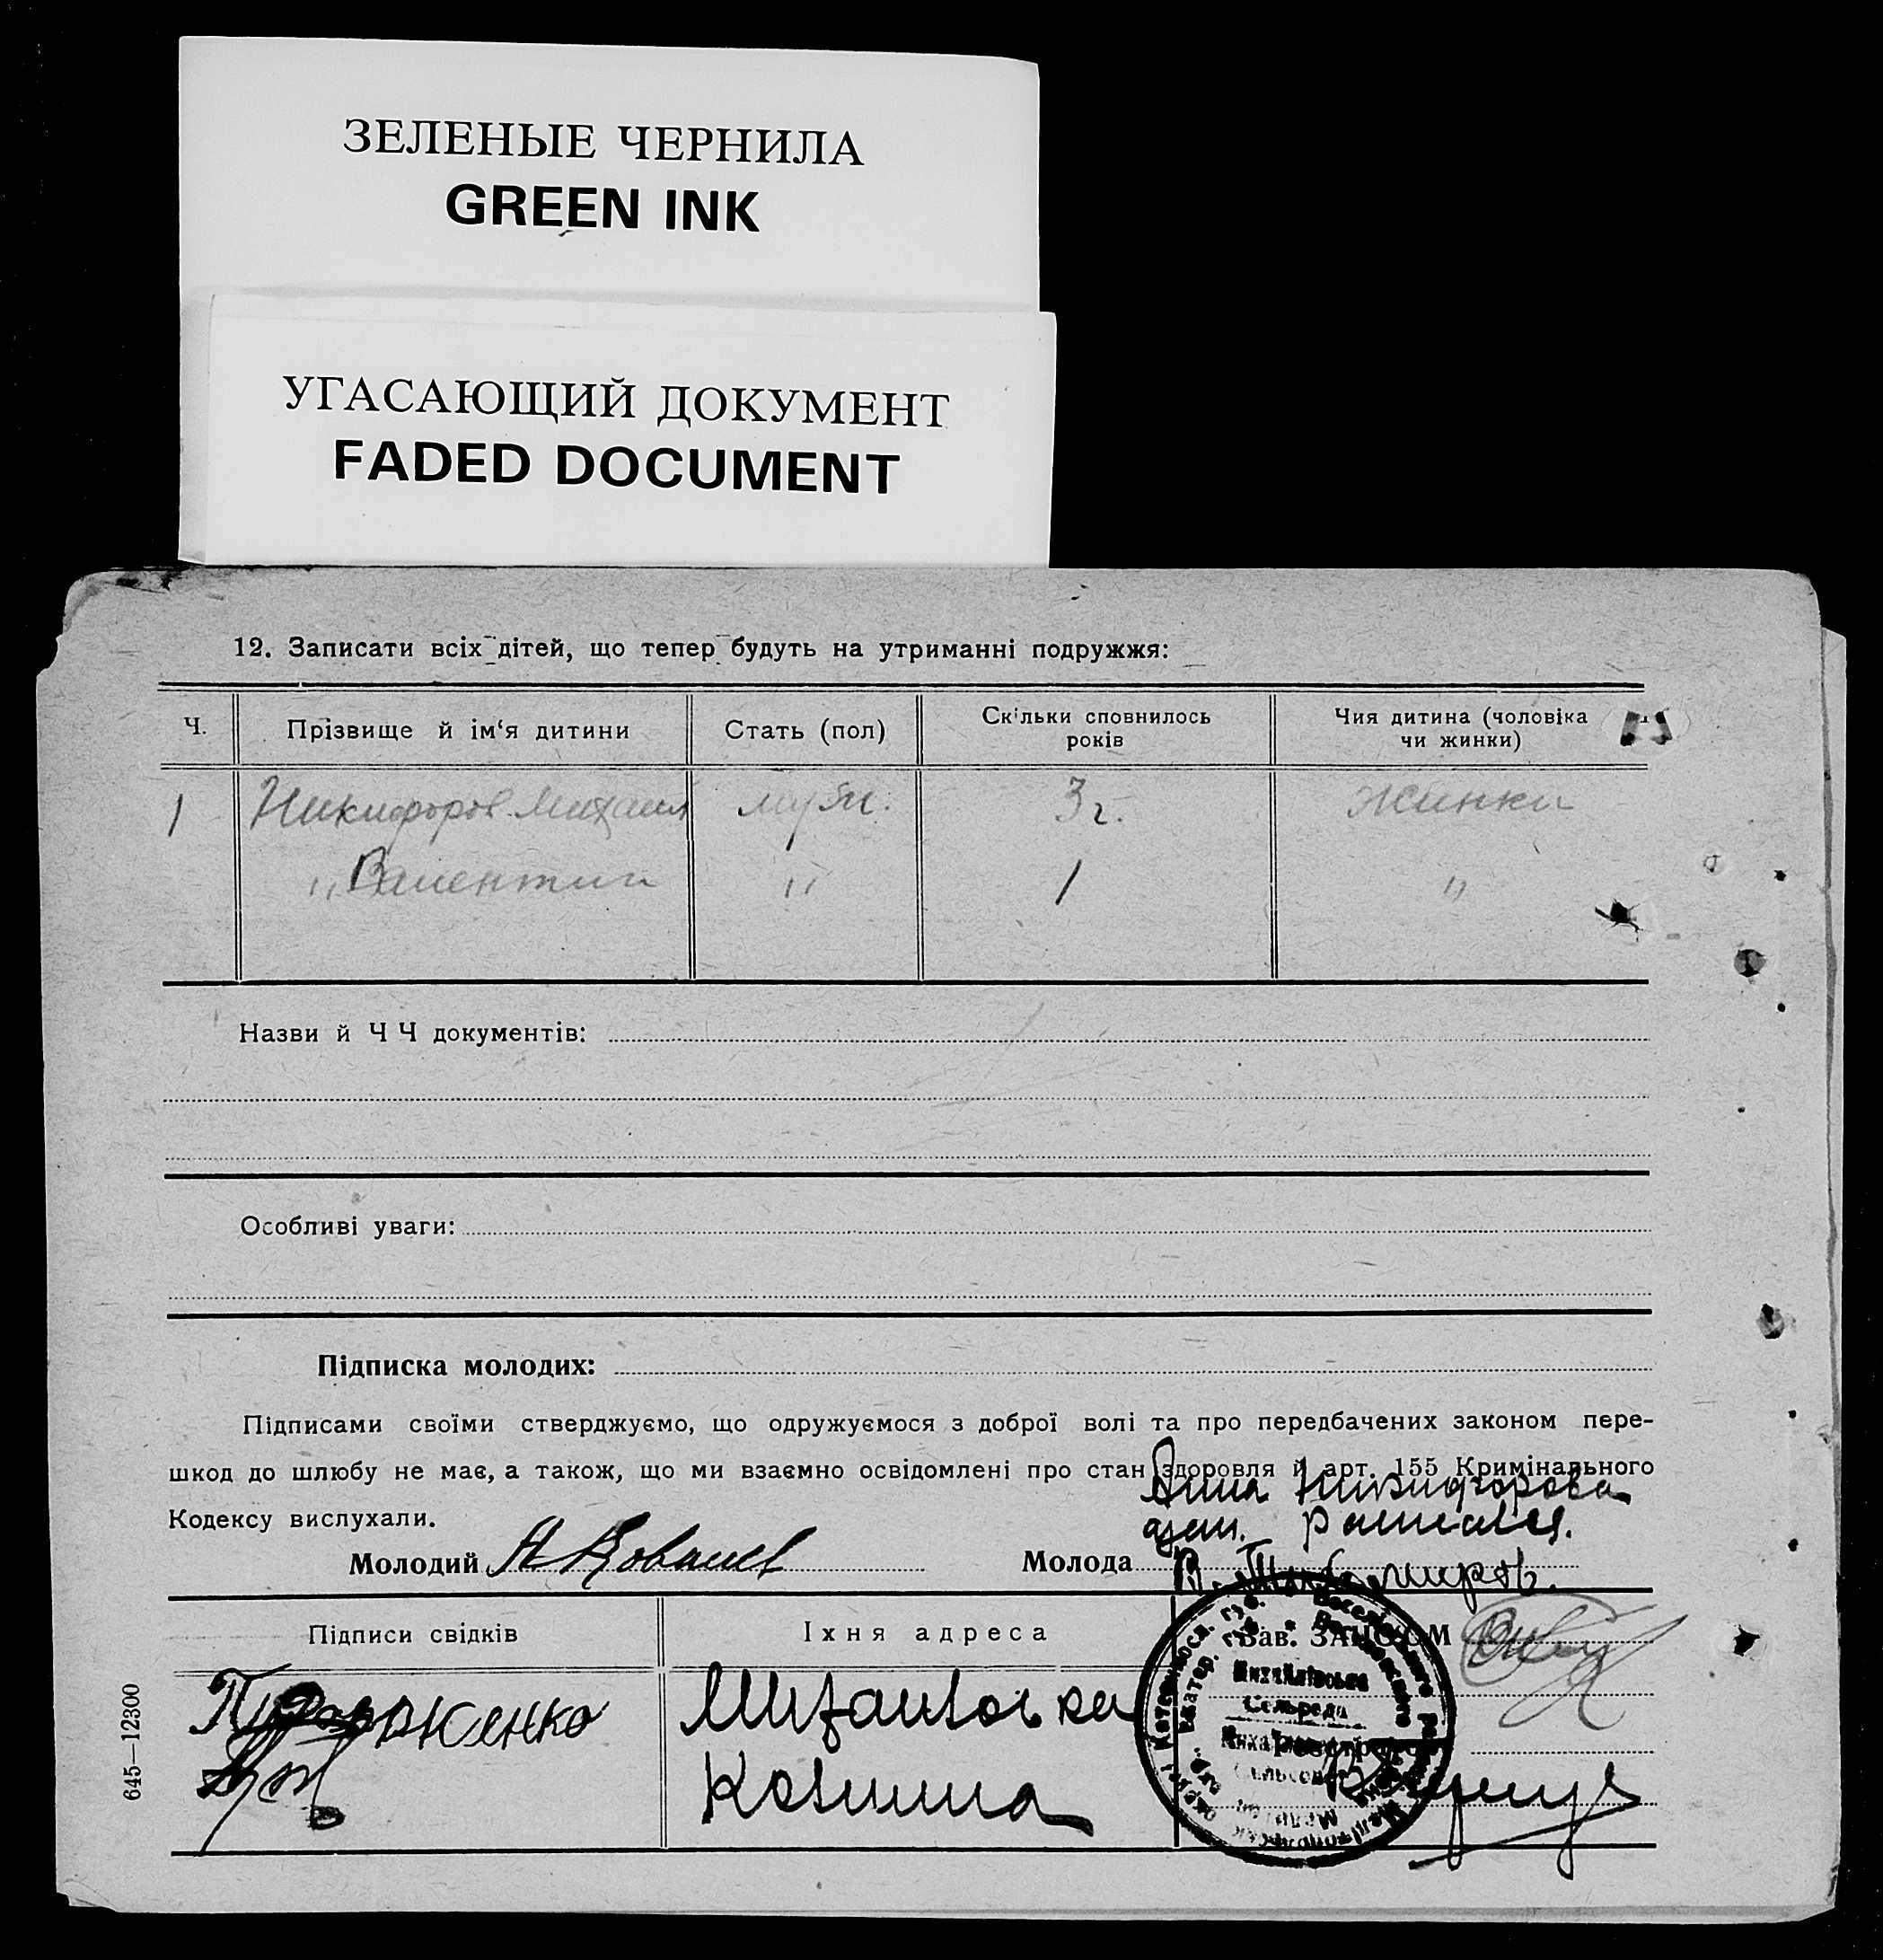 ЗЕЛЕНЫЕ ЧЕРНИЛА
GREEN INK
УГАСАЮЩИЙ ДОКУМЕНТ
FADED DOCUMENT
12. Записати всіх дітей, що тепер будуть на утриманні подружжя:
Ч. Прізвище й ім‘я дитини Стать (пол) Скільки сповнилось років Чия дитина (чоловіка чи жинки)
1 Никифоров Михаил муж. 3 г. Жинки
„ Валентин „ 1 „
Назви й Ч Ч документів:
Особливі уваги:
Підписка молодих:
Підписами своїми стверджуємо, що одружуємося з доброї волі та про передбачених законом пере-
шкод до шлюбу не має, а також, що ми взаємно освідомлені про стан здоровля й арт. 155 Кримінального
Кодексу вислухали.
Анна Никифорова
Молодий А Ковалев Молода
Підписи свідків Їхня адреса Зав. ЗАГСОМ
Михайлівська
Сельрада
645—12300